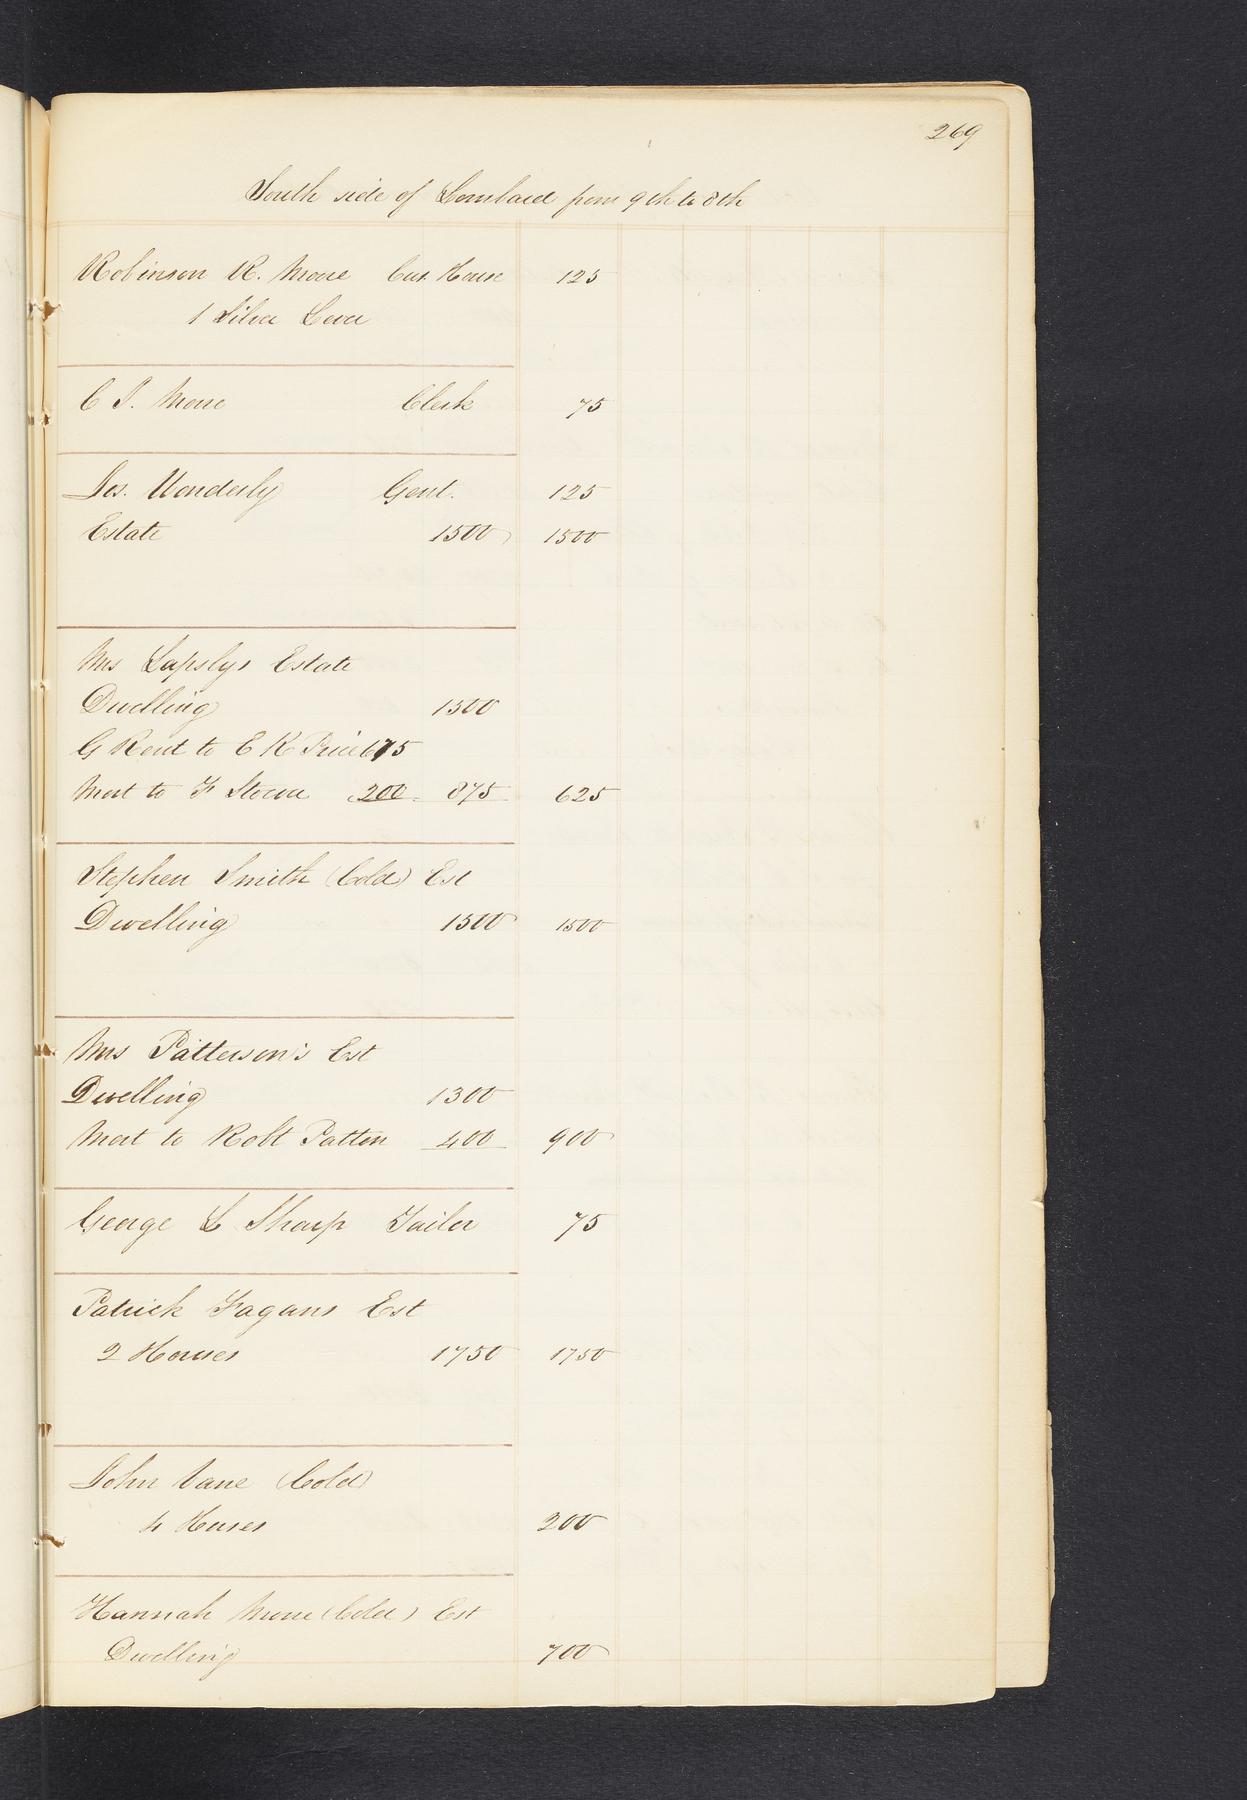 269
South side of Lombard from 9th to 8th
Robinson R. Moore Cus. House 125
1 Silver Lever
C J. Moore Clerk 75
Jos. Wonderly Gent. 125
Estate 1500 1500
Mrs Lapslys Estate
Dwelling 1500
G Rent to E K Price 675
Mort to F Stever 200 875 625
Stephen Smith (Cold) Est
Dwelling 1500 1500
Mrs Patterson's Est
Dwelling 1300
Mort to Robt Patton 400 900
George L Sharp Tailor 75
Patrick Fagans Est
2 Houses 1750 1750
John Vane (Cold)
4 Houses 200
Hannah (Cold) Est
Dwelling 700